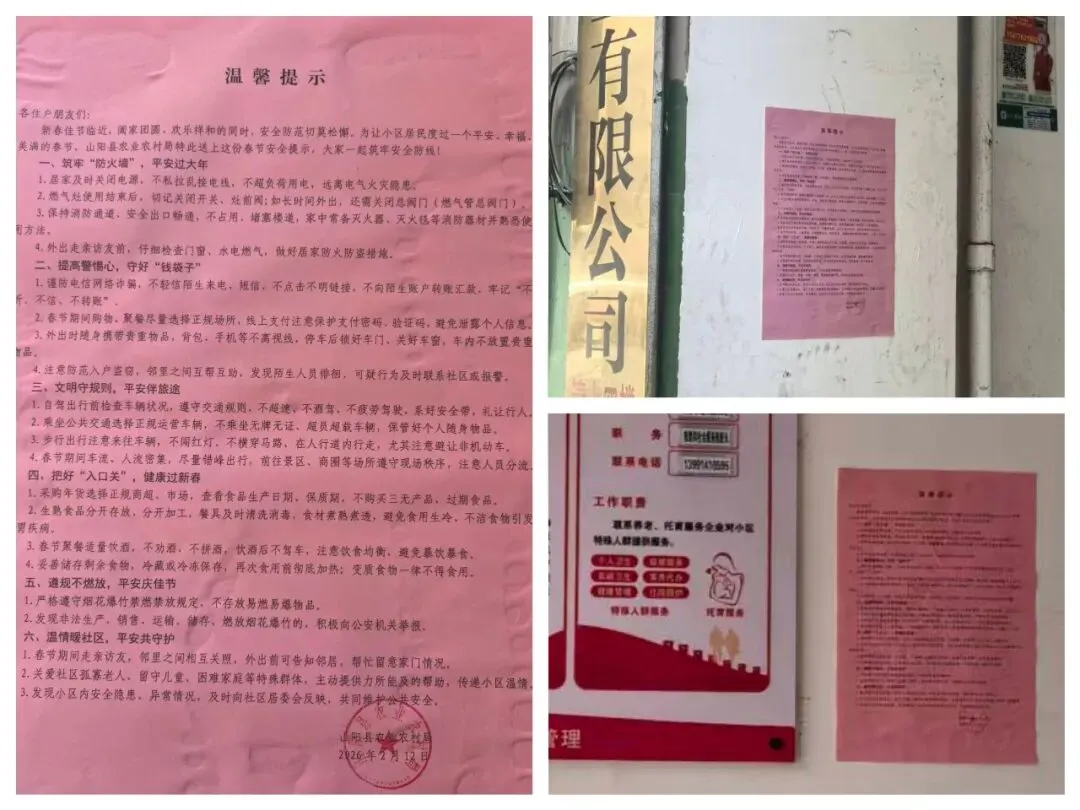 温馨提示
各住户朋友们:
新春佳节临近，阖家团圆、欢乐祥和的同时，安全防范切莫松懈。为让小区居民度过一个平安、幸福、
美满的春节，山阳县农业农村局特此送上这份春节安全提示，大家一起筑牢安全防线!
一、筑牢“防火墙”，平安过大年
1.居家及时关闭电源，不私拉乱接电线，不超负荷用电，远离电气火灾隐患。
2.燃气灶使用结束后，切记关闭开关、灶前阀;如长时间外出，还需关闭总阀门（燃气管总阀门）。
3.保持消防通道、安全出口畅通，不占用、堵塞楼道，家中常备灭火器、灭火毯等消防器材并熟悉使
用方法。
4.外出走亲访友前，仔细检查门窗、水电燃气，做好居家防火防盗措施。
二、提高警惕心，守好“钱袋子”
1.谨防电信网络诈骗，不轻信陌生来电、短信，不点击不明链接，不向陌生账户转账汇款，牢记“不
听、不信、不转账”。
2.春节期间购物、聚餐尽量选择正规场所，线上支付注意保护支付密码、验证码，避免泄露个人信息。
3.外出时随身携带贵重物品，背包、手机等不离视线，停车后锁好车门、关好车窗，车内不放置贵重
物品。
4.注意防范入户盗窃，邻里之间互帮互助，发现陌生人员徘徊、可疑行为及时联系社区或报警。
三、文明守规则，平安伴旅途
1.自驾出行前检查车辆状况，遵守交通规则，不超速、不酒驾、不疲劳驾驶，系好安全带，礼让行人。
2.乘坐公共交通选择正规运营车辆，不乘坐无牌无证、超员超载车辆，保管好个人随身物品。
3.步行出行注意来往车辆，不闯红灯、不横穿马路、在人行道内行走，尤其注意避让非机动车。
4.春节期间车流、人流密集，尽量错峰出行，前往景区、商圈等场所遵守现场秩序，注意人员分流。
四、把好“入口关”，健康过新春
1.采购年货选择正规商超、市场，查看食品生产日期、保质期，不购买三无产品、过期食品。
2.生熟食品分开存放、分开加工，餐具及时清洗消毒，食材煮熟煮透，避免食用生冷、不洁食物引发
胃疾病。
3.春节聚餐适量饮酒，不劝酒、不拼酒，饮酒后不驾车，注意饮食均衡，避免暴饮暴食。
4.妥善储存剩余食物，冷藏或冷冻保存，再次食用前彻底加热；变质食物一律不得食用。
五、遵规不燃放，平安庆佳节
1.严格遵守烟花爆竹禁燃禁放规定，不存放易燃易爆物品。
2.发现非法生产、销售、运输、储存、燃放烟花爆竹的，积极向公安机关举报。
六、温情暖社区，平安共守护
1.春节期间走亲访友，邻里之间相互关照，外出前可告知邻居，帮忙留意家门情况。
2.关爱社区孤寡老人、留守儿童、困难家庭等特殊群体，主动提供力所能及的帮助，传递小区温情。
3.发现小区内安全隐患、异常情况，及时向社区居委会反映，共同维护公共安全。
山阳县农业农村局
2026年2月12日
有限公司
职 务
联系电话
工作职责
联系养老、托育服务企业对小区
特殊人群提供服务。
特殊人群服务
托育服务
管理